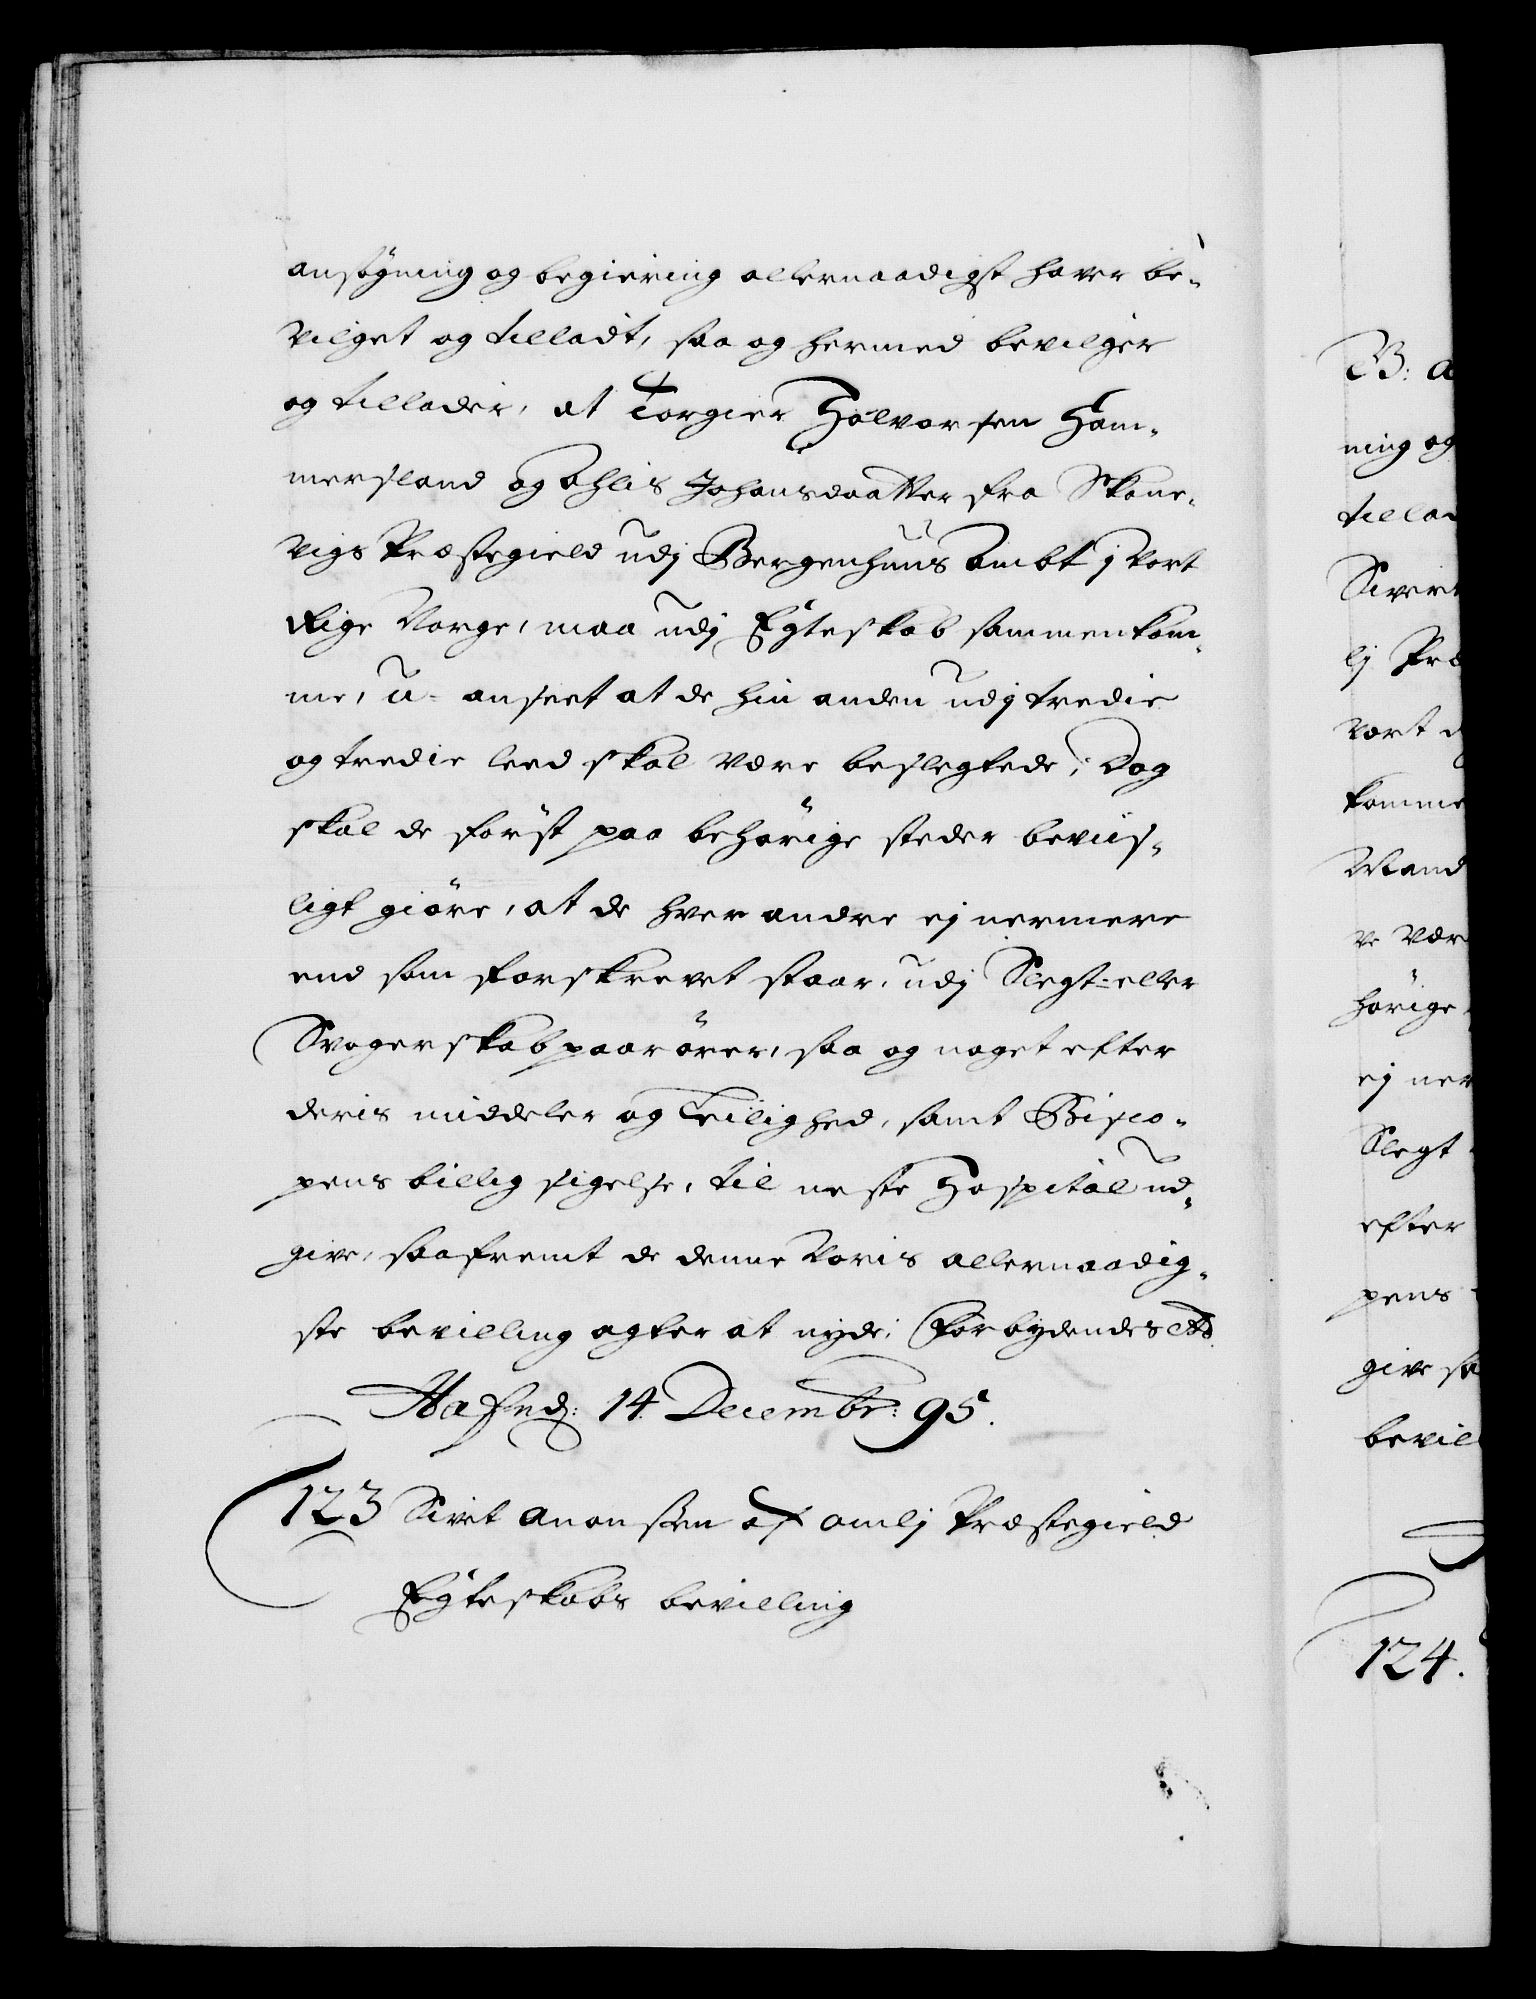 ansögning og begiering allernaadigst haver be-
vilget og tilladt, saa og hermed bevilger
og tillader, at Torgier Halvorsen Ham-
mersland og Ahlis Johansdaatter fra Skone-
vigs Præstegield udj Bergenhuus Ambt j Vort
Rige Norge, maa udj Egteskab sammenkom-
me, u-anseet at de hin anden udj tredie
og tredie leed skal være beslegtede; Dog
skal de først paa behörige steder beviis-
ligt giöre, at de hver andre ej nermere
end som forskrevet staar, udj Slegt- eller
Svogerskab paarörer, saa og noget efter
deris middeler og Leilighed, samt Bisco-
pens billig sigelse, til neste Hospital ud-
give, saafremt de denne Voris allernaadig-
ste bevilling agter at nyde; Forbydendes etc
Hafnd: 14. Decembr: 95.
123 Sivert Anonsen af Omlj Præstegield
Egteskabs bevilling
B: a
ning og
tillad
Siver
lj Præ
Vort
komme
Mand
ve vær
hörige
ej ner
Slegt
efter
pens
give sa
bevil
124.